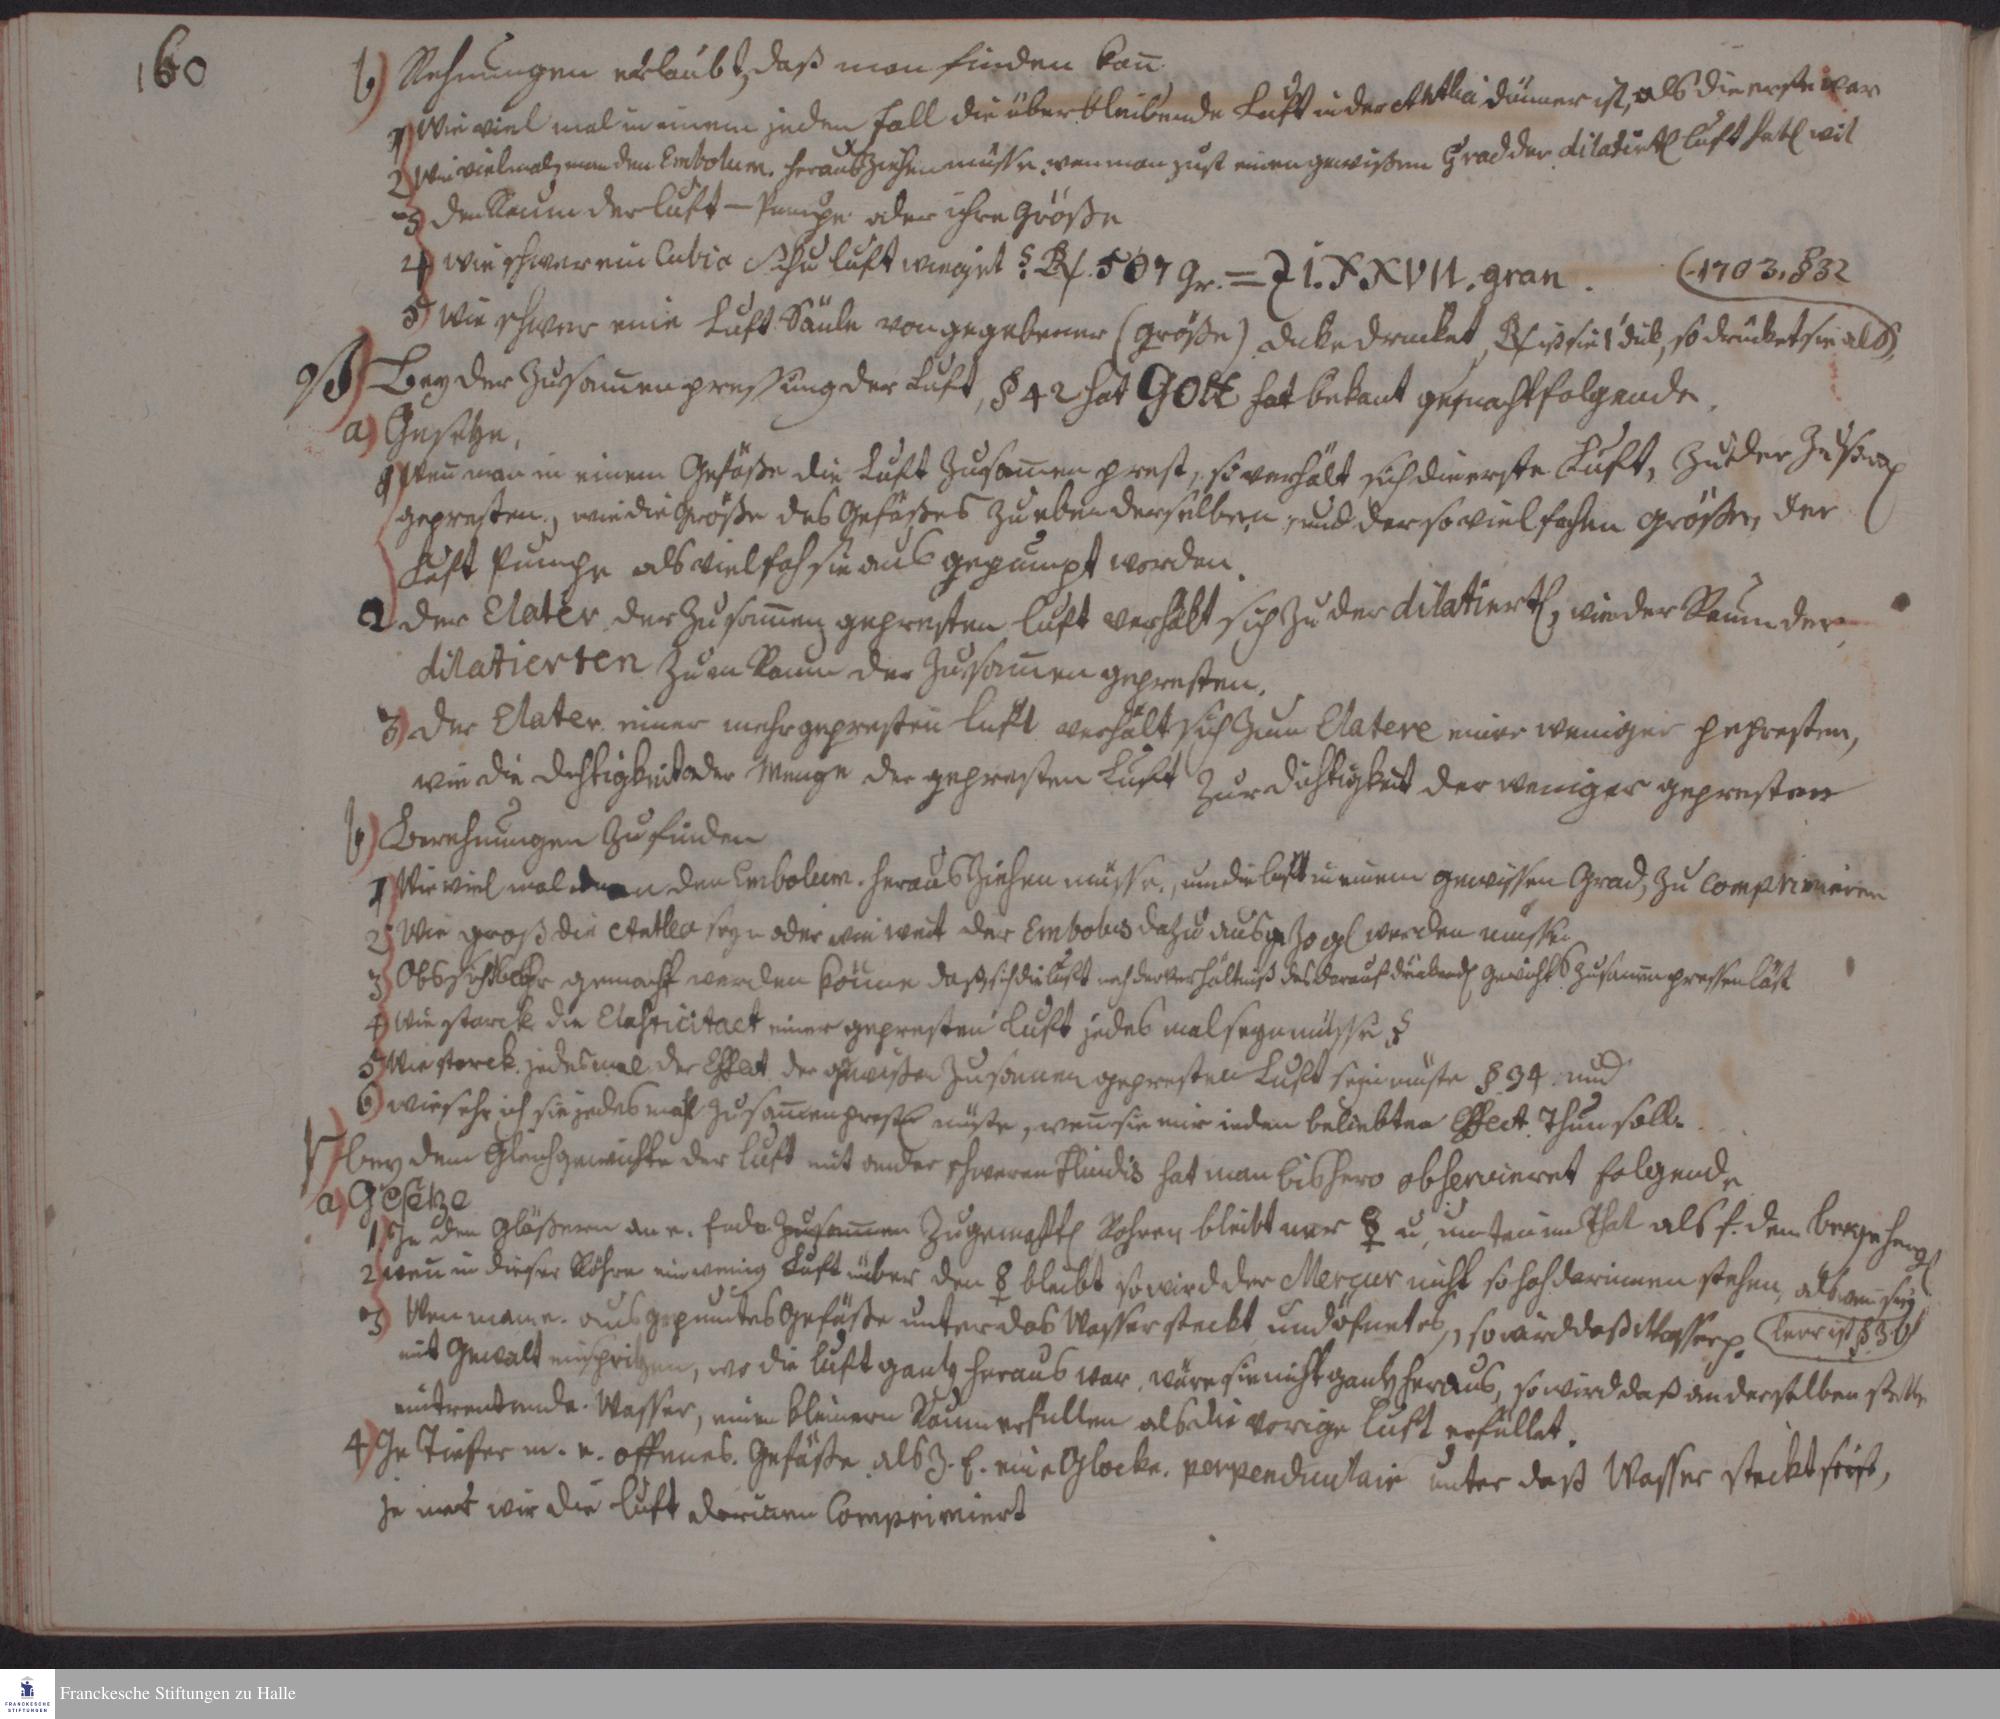 160
b) Rechnungen erlaubt, daß man finden kan̄
1) Wie viel mal in einem jeden fall die überbleibende Luft in der Antlia dünner ist, als die erste war
2) Wie vielmal man den Embolum heraus ziehen müsse, wen man just einen gewißen Grad der dilatirten luft haben wil
3) Den Raum der luft-Pumpe oder ihre Größe
4) Wie schwer ein Cubic Schu luft wieget 507 gr. = XXVII. gran.
5) Wie schwer eine Luft Säule von gegebener (größe) dicke drucket, ist sie 1' dick, so drücket sie als
(1703. § 32
Bey der Zusam̄enpressung der Luft, § 42 hat GOtt hat bekant gemacht folgende
a) Gesetze,
1) Wen̄ man in einem Gefäße die Luft zusam̄en prest, so verhält sich die erste Luft, zu der zusam̄en
gepresten, wie die Größe des Gefäßes zu eben derselben, und der so vielfachen größe, der
Luft Pumpe als vielfach sie aus gepumpt worden.
2 Der Elater der zusam̄en gepresten luft verhält sich zu der dilatierten, wie der Raum der
dilatierten zum Raum der zusam̄en gepresten.
3) Der Elater einer mehr gepresten luft verhält sich zum Elatere einer weniger gepresten,
wie die Dichtigkeit oder Menge der gepresten Luft zur Dichtigkeit der weniger gepresten
b) Berechnungen zu finden
1) Wie viel mal man den Embolum heraus ziehen müsse, um die luft in einem gewissen Grad, zu comprimieren
2) Wie groß die Antlia seyn oder wie weit der Embolus dazu ausgezogen werden müsse
3) Obs sichtbar gemacht werden könne daß sich die luft nach der Verhältniß des darauf drückenden gewichts zusam̄en pressen läst
4) Wie starck die Elasticitaet einer gepresten luft jedes mal seyn müsse §
5) Wie starck jedesmal der Effect der gewißen zusam̄en gepresten Luft sein müste § 34 und
6) wie sehr ich sie jedes mahl zusam̄enpresen müste, wen̄ sie mir ieden beliebten Effect thun soll.
bey dem Gleichgewichte der luft mit ander schweren fluidis hat man bishero observieret folgende
a) Gesetze
1) In den Gläßern an e. Ende zusam̄en zugemachten Rohren bleibt nur ☿ u. unten im Thal als f. dem bergehengen
2) wen̄ in dieser Röhre ein wenig Luft über den ☿ bleibt so wird der Mercur nicht so hoch darinnen stehen, als wen̄ sie
3) Wen man e. ausgepumtes Gefäße unter das Wasser steckt und öfnet es, so wird daß Wasser p. (leer ist § 36
mit Gewalt einspritzen, wo die luft gantz heraus war, wäre sie nicht gantz heraus, so wird daß an derselben stelle
eintretende Wasser, einen kleinern Raum erfüllen als die vorige luft erfüllet.
4) Je tiefer m. e. offenes Gefäße als z. E. eine Glocke perpendiculair unter daß Wasser steckt,
je mer wir die luft darinnen Comprimiert
Franckesche Stiftungen zu Halle
FRANCKESCHE
STIFTUNGEN